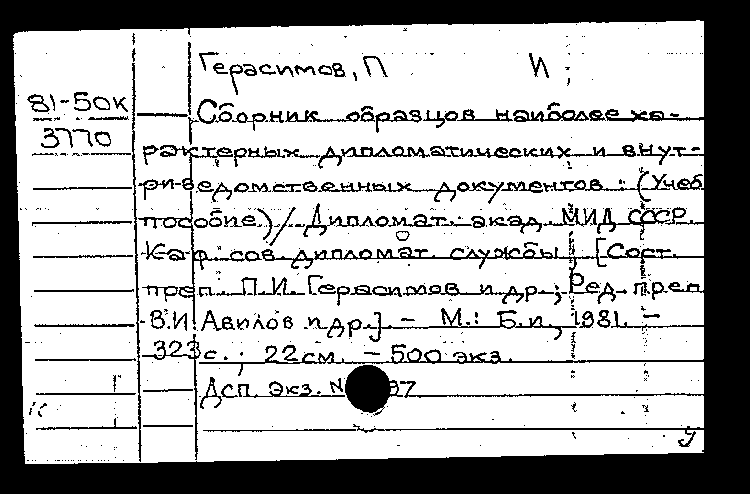 Герасимов, П И;
81-50к
3770
Сборник образцов наиболее ха-
рактерных дипломатических и внут-
ри-ведомственных документов: (Учеб
пособие) / Дипломат. акад. МИД СССР.
Каф. сов. дипломат. службы; [Сост.
преп. П.И. Герасимов и др.; Ред. преп
В.И. Авилов и др.]. - М.: Б.и., 1981. -
323с.; 22см. - 500 экз.
Дсп. Экз. N 37